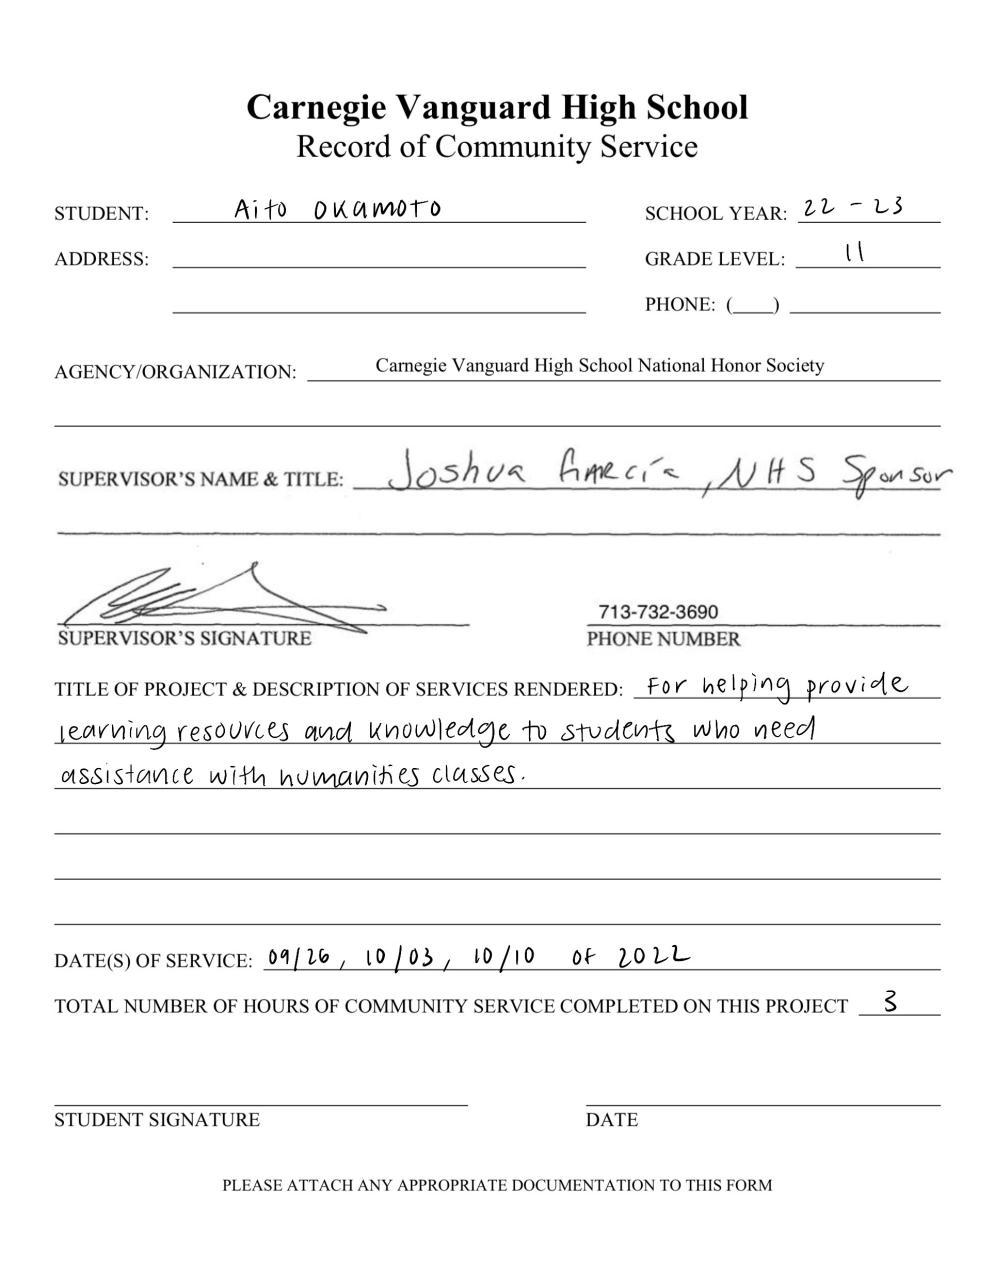 Carnegie Vanguard High School
Record of Community Service
STUDENT: Aito Okamoto SCHOOL YEAR: 22 - 23
ADDRESS: GRADE LEVEL: 11
PHONE: (____)
AGENCY/ORGANIZATION: Carnegie Vanguard High School National Honor Society
SUPERVISOR'S NAME & TITLE: Joshua García, NHS Sponsor
713-732-3690
SUPERVISOR'S SIGNATURE PHONE NUMBER
TITLE OF PROJECT & DESCRIPTION OF SERVICES RENDERED: For helping provide
learning resources and knowledge to students who need
assistance with humanities classes.
DATE(S) OF SERVICE: 09/26, 10/03, 10/10 of 2022
TOTAL NUMBER OF HOURS OF COMMUNITY SERVICE COMPLETED ON THIS PROJECT 3
STUDENT SIGNATURE DATE
PLEASE ATTACH ANY APPROPRIATE DOCUMENTATION TO THIS FORM